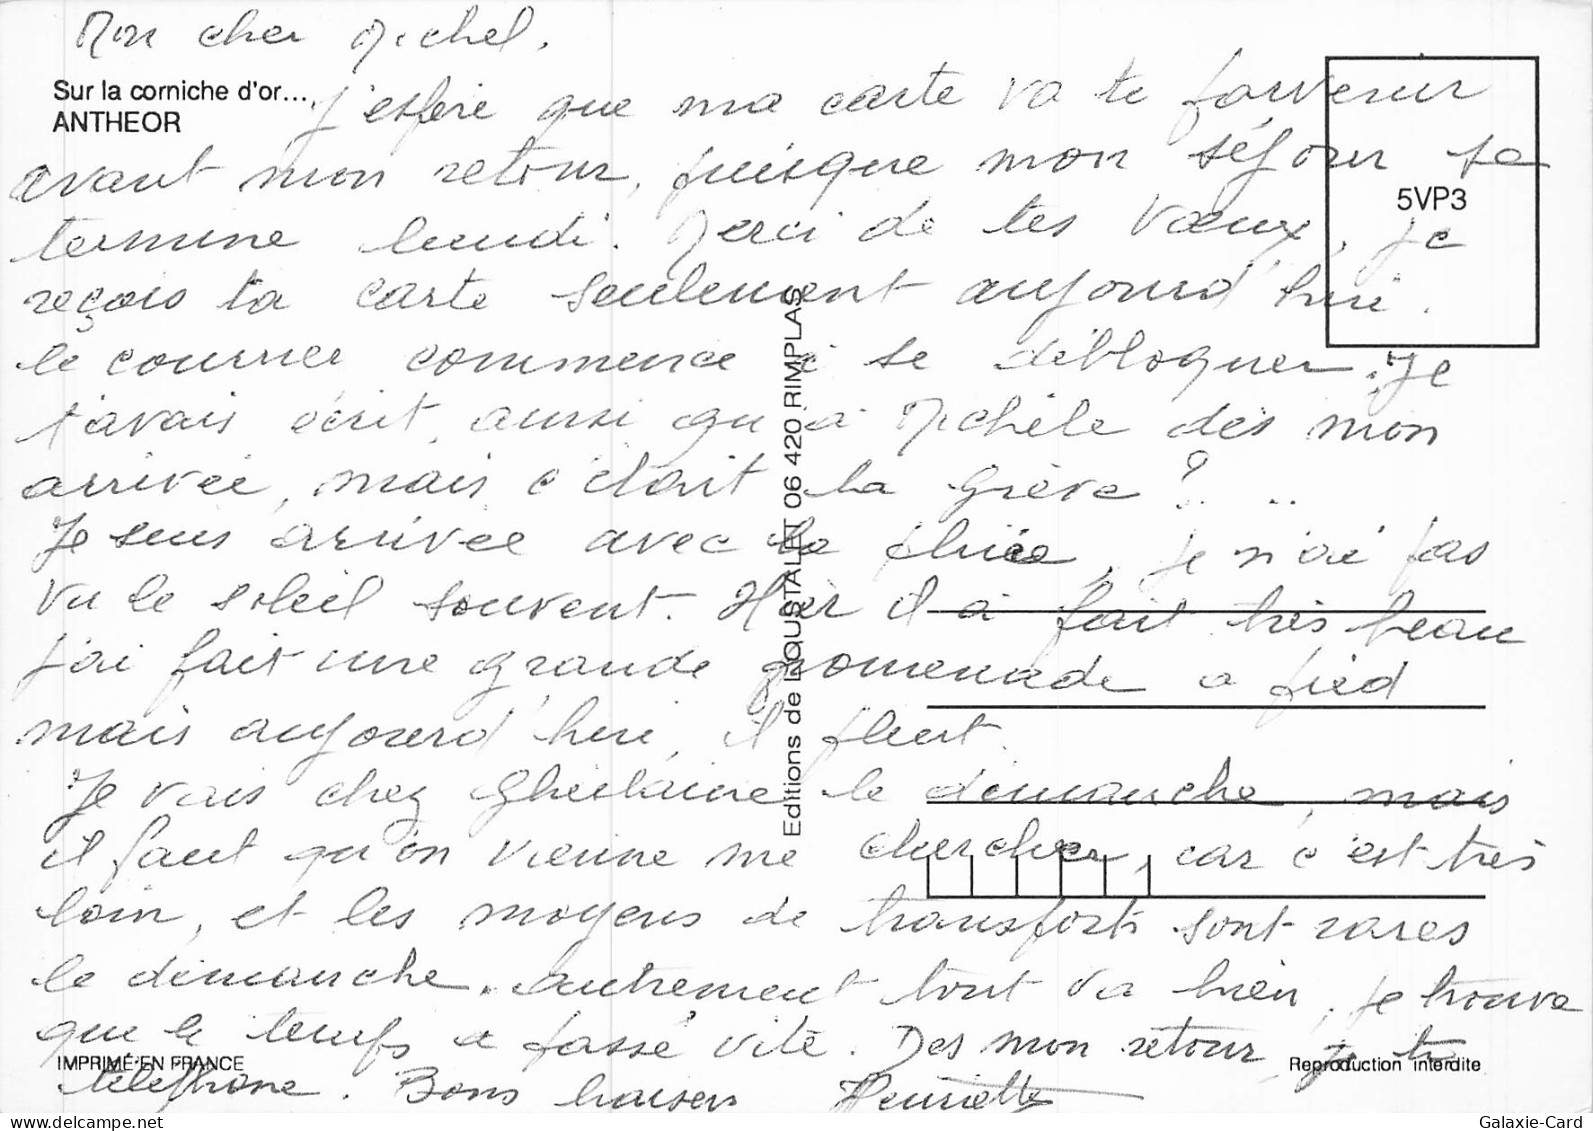 Mon cher Michel.
Sur la corniche d'or...
ANTHEOR
J'espère que ma carte va te parvenir
avant mon retour, puisque mon séjour se
termine lundi. Merci de tes vœux, je
5VP3
reçois ta carte seulement aujourd'hui.
le courrier commence à se débloquer. Je
t'avais écrit, aussi qu'à Michèle dès mon
arrivée, mais c'était la grève ?...
Je suis arrivée avec la pluie, je n'ai pas
vu le soleil souvent. Hier il a fait très beau
j'ai fait une grande promenade a pied
mais aujourd'hui, il pleut.
Je vais chez Ghislaine le dimanche, mais
il faut qu'on vienne me chercher, car c'est très
loin, et les moyens de transports sont rares
le dimanche. autrement tout va bien, je trouve
que le temps a passé vite. Des mon retour je te
téléphone. Bons baisers Henriette
Editions de L'OUSTALET 06 420 RIMPLAS
IMPRIMÉ EN FRANCE
Reproduction interdite
Galaxie-Card